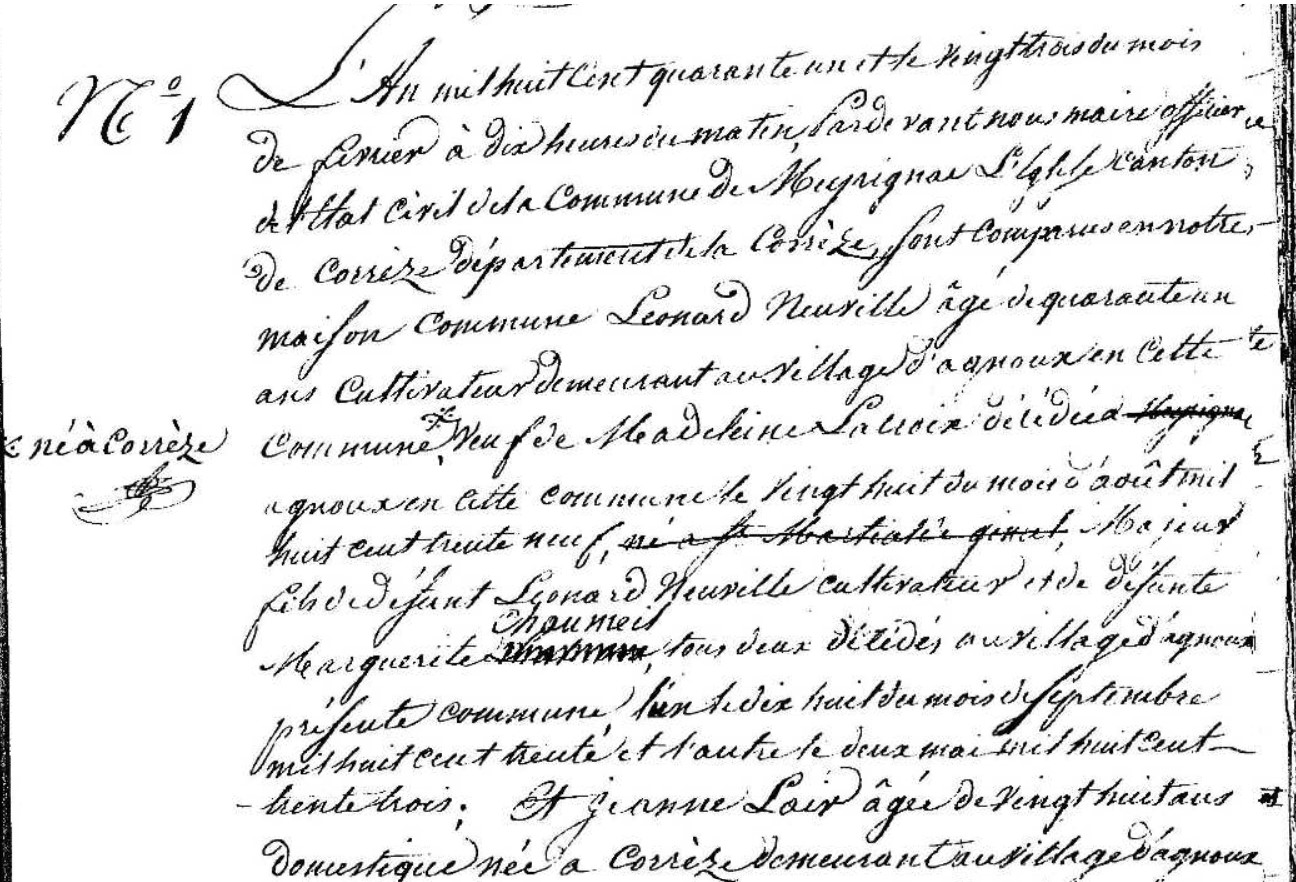 N.º 1
L'An mil huit Cent quarante un et le vingt trois du mois
de fevrier à dix heures du matin, Pardevant nous maire officier
de l'état Civil de la Commune de Meyrignac L'Eglise canton
de Corrèze département de la Corrèze, sont Comparus en notre
maison Commune Leonard Neuville âgé de quarante un
ans Cultivateur demeurant au village d'agnoux en Cette
né à Corrèze
Commune, Veuf de Madeleine Lacroix décédée a Meyrignac
agnoux en cette commune le vingt huit du mois d'août mil
huit cent trente neuf, né a St Martial de gimel, Majeur
fils de défunt Leonard Neuville cultivateur et de défunte
Chaumeil
Marguerite, tous deux décédés au village d'agnoux
présente commune, l'un le dix huit du mois de Septembre
mil huit cent trente, et l'autre le deux mai mil huit cent
trente trois. Et Jeanne Lair âgée de vingt huit ans
domestique née a Corrèze demeurant au village d'agnoux